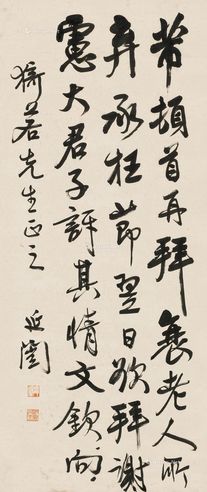 芾頓首再拜衰老人所
弃承枉節翌日欲拜謝
憲大君子評其情文欽向
衡若先生正之
延闓